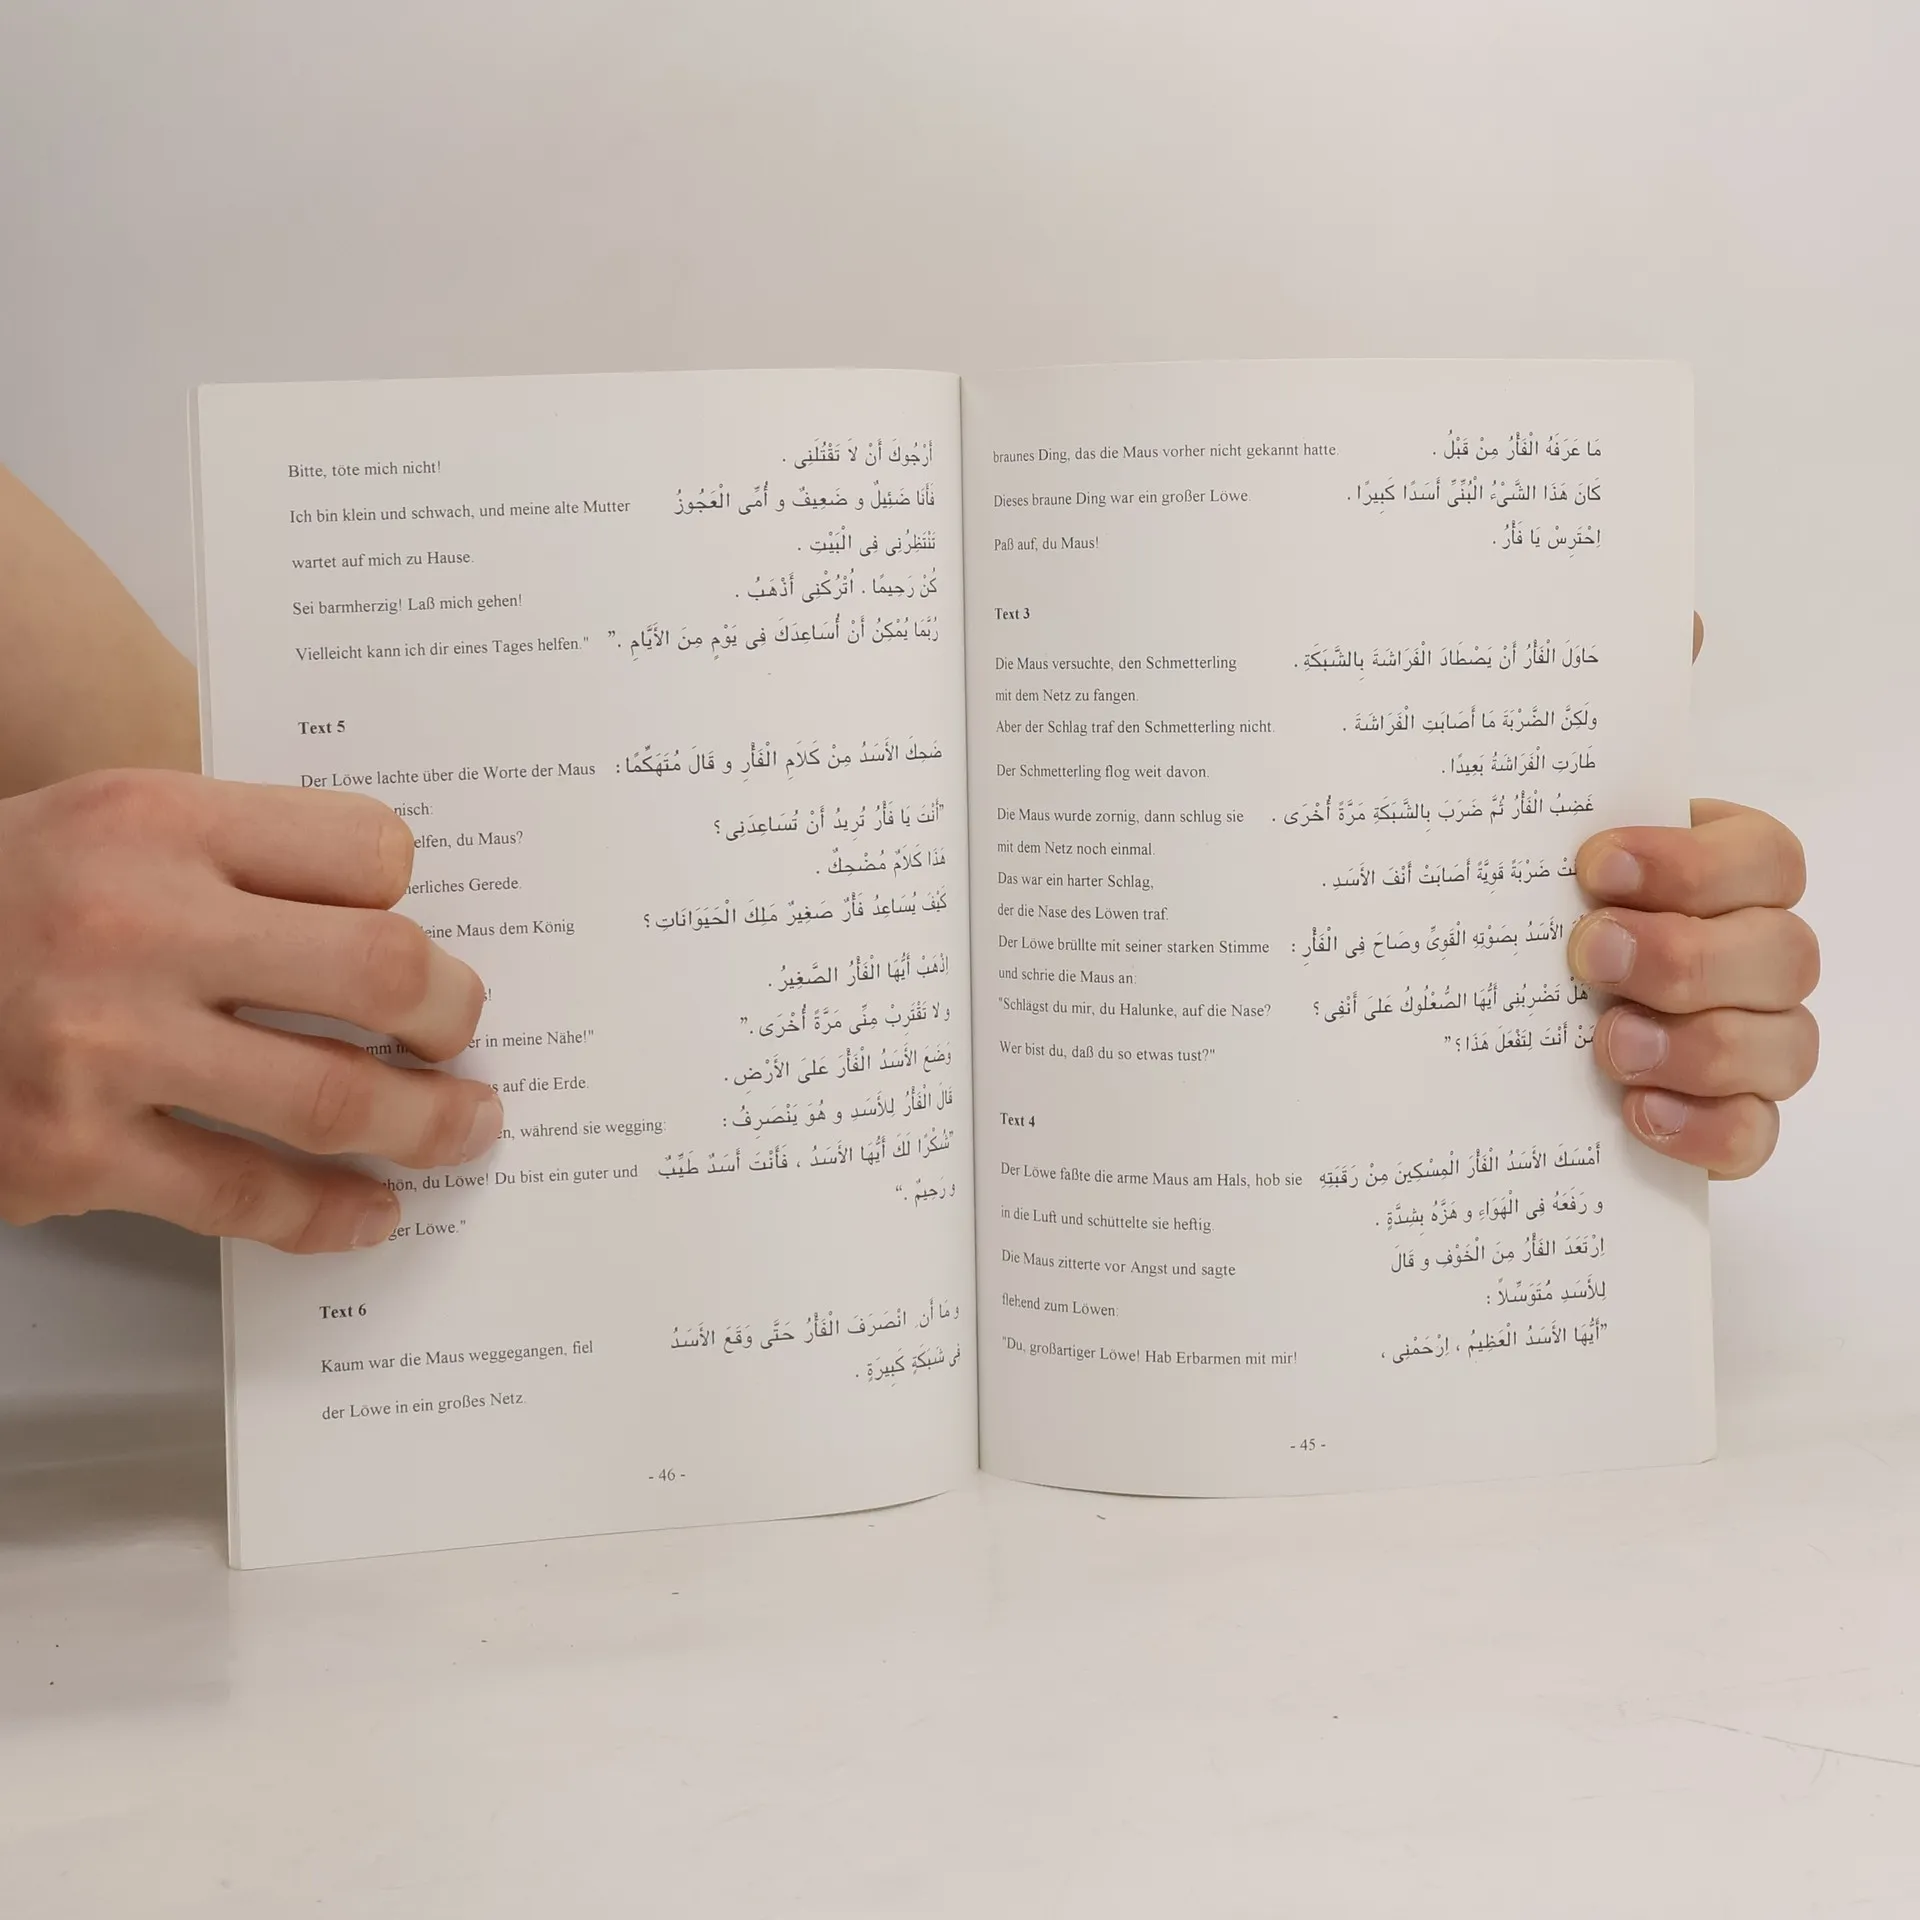 braunes Ding, das die Maus vorher nicht gekannt hatte.
مَا عَرَفَهُ الْفَأْرُ مِنْ قَبْلُ .
Dieses braune Ding war ein großer Löwe.
كَانَ هَذَا الشَّىْءُ الْبُنِّىُّ أَسَدًا كَبِيرًا .
Paß auf, du Maus!
اِحْتَرِسْ يَا فَأْرُ .
Text 3
Die Maus versuchte, den Schmetterling
حَاوَلَ الْفَأْرُ أَنْ يَصْطَادَ الْفَرَاشَةَ بِالشَّبَكَةِ .
mit dem Netz zu fangen.
Aber der Schlag traf den Schmetterling nicht.
ولَكِنَّ الضَّرْبَةَ مَا أَصَابَتِ الْفَرَاشَةَ .
Der Schmetterling flog weit davon.
طَارَتِ الْفَرَاشَةُ بَعِيدًا .
Die Maus wurde zornig, dann schlug sie
غَضِبُ الْفَأْرُ ثُمَّ ضَرَبَ بِالشَّبَكَةِ مَرَّةً أُخْرَى .
mit dem Netz noch einmal.
Das war ein harter Schlag,
ضَرْبَةً قَوِيَّةً أَصَابَتْ أَنْفَ الأَسَدِ .
der die Nase des Löwen traf.
Der Löwe brüllte mit seiner starken Stimme
الأَسَدُ بِصَوْتِهِ الْقَوِىِّ وصَاحَ فِى الْفَأْرِ :
und schrie die Maus an:
"Schlägst du mir, du Halunke, auf die Nase?
هَلْ تَضْرِبُنِى أَيُّهَا الصُّعْلُوكُ عَلىَ أَنْفِى ؟
Wer bist du, daß du so etwas tust?"
مَنْ أَنْتَ لِتَفْعَلَ هَذَا ؟ ”
Text 4
Der Löwe faßte die arme Maus am Hals, hob sie
أَمْسَكَ الأَسَدُ الْفَأْرَ الْمِسْكِينَ مِنْ رَقَبَتِهِ
in die Luft und schüttelte sie heftig.
و رَفَعَهُ فِى الْهَوَاءِ و هَزَّهُ بِشِدَّةٍ .
Die Maus zitterte vor Angst und sagte
اِرْتَعَدَ الفَأْرُ مِنَ الْخَوْفِ و قَالَ
flehend zum Löwen:
لِلأَسَدِ مُتَوَسِّلاً :
"Du, großartiger Löwe! Hab Erbarmen mit mir!
”أَيُّهَا الأَسَدُ الْعَظِيمُ ، اِرْحَمْنِى ،
- 45 -
Bitte, töte mich nicht!
أَرْجُوكَ أَنْ لاَ تَقْتُلَنِى .
Ich bin klein und schwach, und meine alte Mutter
فَأَنَا ضَئِيلٌ و ضَعِيفٌ و أُمِّى الْعَجُوزُ
wartet auf mich zu Hause.
تَنْتَظِرُنِى فِى الْبَيْتِ .
Sei barmherzig! Laß mich gehen!
كُنْ رَحِيمًا . اُتْرُكْنِى أَذْهَبُ .
Vielleicht kann ich dir eines Tages helfen."
رُبَّمَا يُمْكِنُ أَنْ أُسَاعِدَكَ فِى يَوْمٍ مِنَ الأَيَّامِ .”
Text 5
Der Löwe lachte über die Worte der Maus
ضَحِكَ الأَسَدُ مِنْ كَلاَمِ الْفَأْرِ و قَالَ مُتَهَكِّمًا :
nisch:
elfen, du Maus?
”أَنْتَ يَا فَأْرُ تُرِيدُ أَنْ تُسَاعِدَنِى ؟
herliches Gerede.
هَذَا كَلاَمٌ مُضْحِكٌ .
eine Maus dem König
كَيْفَ يُسَاعِدُ فَأْرٌ صَغِيرٌ مَلِكَ الْحَيَوَانَاتِ ؟
s!
اِذْهَبْ أَيُّهَا الْفَأْرُ الصَّغِيرُ .
er in meine Nähe!"
و لا تَقْتَرِبْ مِنِّى مَرَّةً أُخْرَى .”
s auf die Erde.
وَضَعَ الأَسَدُ الْفَأْرَ عَلىَ الأَرْضِ .
en, während sie wegging:
قَالَ الْفَأْرُ لِلأَسَدِ و هُوَ يَنْصَرِفُ :
hön, du Löwe! Du bist ein guter und
”شُكْرًا لَكَ أَيُّهَا الأَسَدُ ، فَأَنْتَ أَسَدٌ طَيِّبٌ
ger Löwe."
و رَحِيمٌ .“
Text 6
Kaum war die Maus weggegangen, fiel
و مَا أَن انْصَرَفَ الْفَأْرُ حَتَّى وَقَعَ الأَسَدُ
der Löwe in ein großes Netz.
فِى شَبَكَةٍ كَبِيرَةٍ .
- 46 -